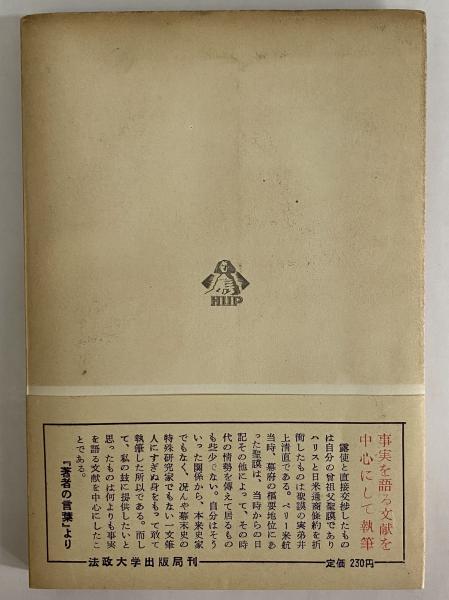 HUP
事実を語る文献を
中心にして執筆
露使と直接交渉したもの
は自分の曾祖父聖謨であり
ハリスと日米通商條約を折
衝したものは聖謨の実弟井
上清直である。ペリー来航
当時、幕府の樞要地位にあ
った聖謨は、当時からの日
記その他によって、その時
代の情勢を傳えて居るもの
も些少でない。自分はそう
いった関係から、本来史家
でもなく、況んや幕末史の
特殊研究家でもない一文筆
人にすぎぬ身をもって敢て
執筆した所以である。而し
て、私の玆に提供したいと
思ったものは何よりも事実
を語る文献を中心にしたこ
とである。
『著者の言葉』より
法政大学出版局刊
定価 230円